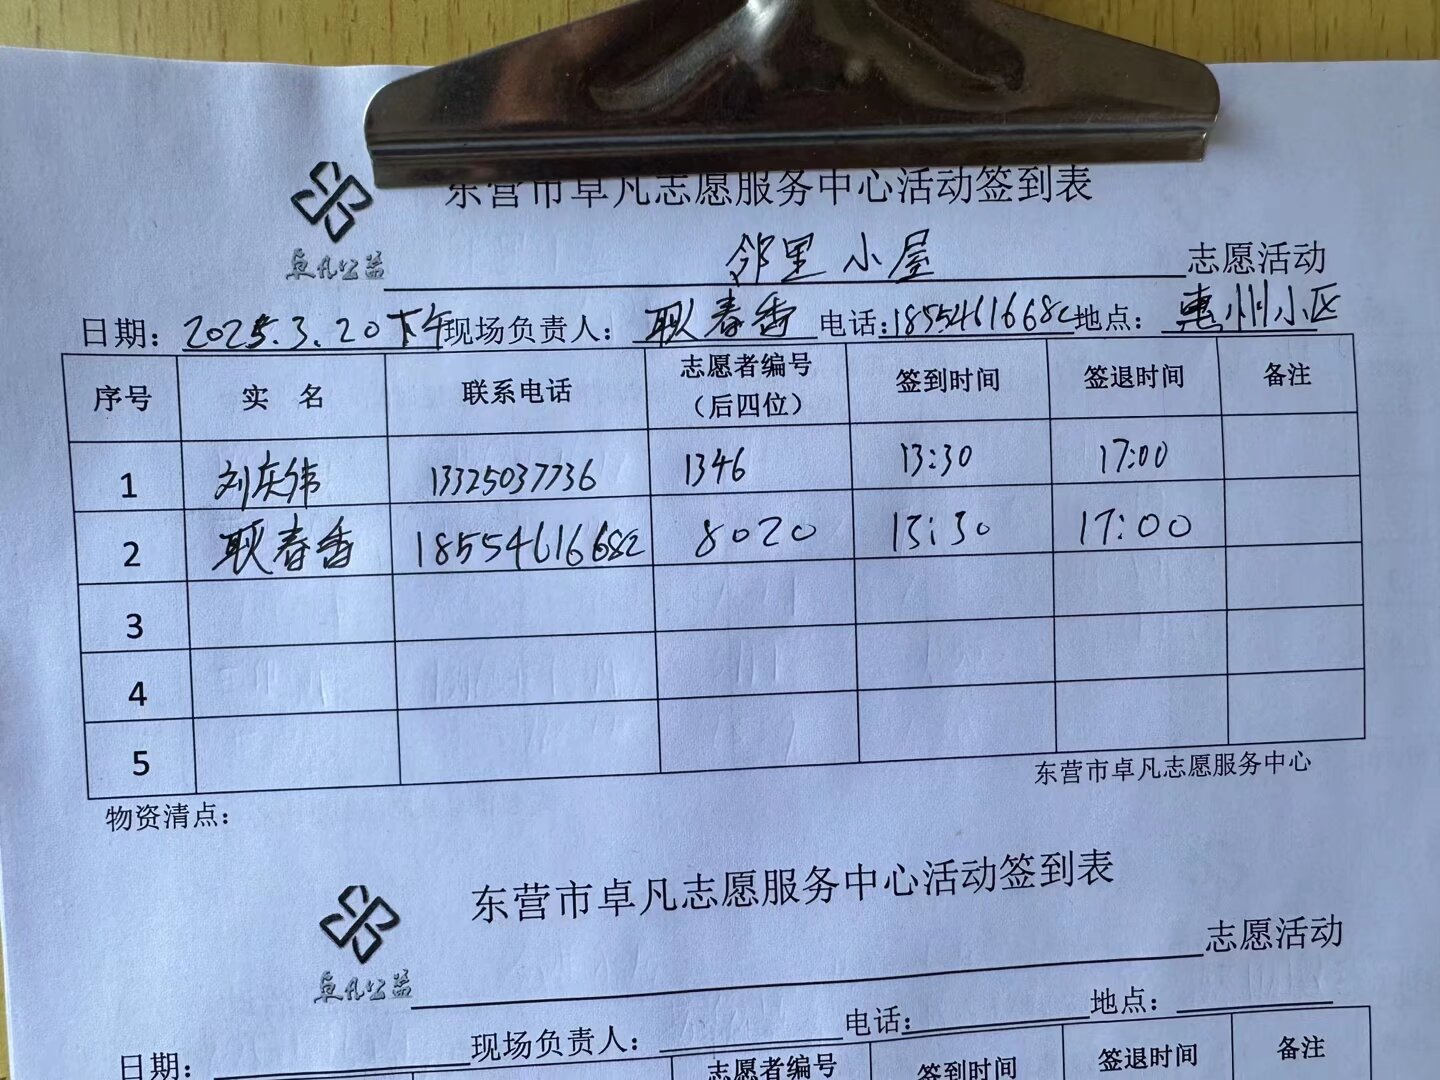 东营市卓凡志愿服务中心活动签到表
卓凡公益
邻里小屋 志愿活动
日期：2025.3.20下午 现场负责人：耿春香 电话：18554616682 地点：惠州小区
序号 实 名 联系电话 志愿者编号（后四位） 签到时间 签退时间 备注
1 刘庆伟 13325037736 1346 13:30 17:00
2 耿春香 18554616682 8020 13:30 17:00
3
4
5
东营市卓凡志愿服务中心
物资清点：
东营市卓凡志愿服务中心活动签到表
卓凡公益
志愿活动
日期： 现场负责人： 电话： 地点：
志愿者编号 签到时间 签退时间 备注